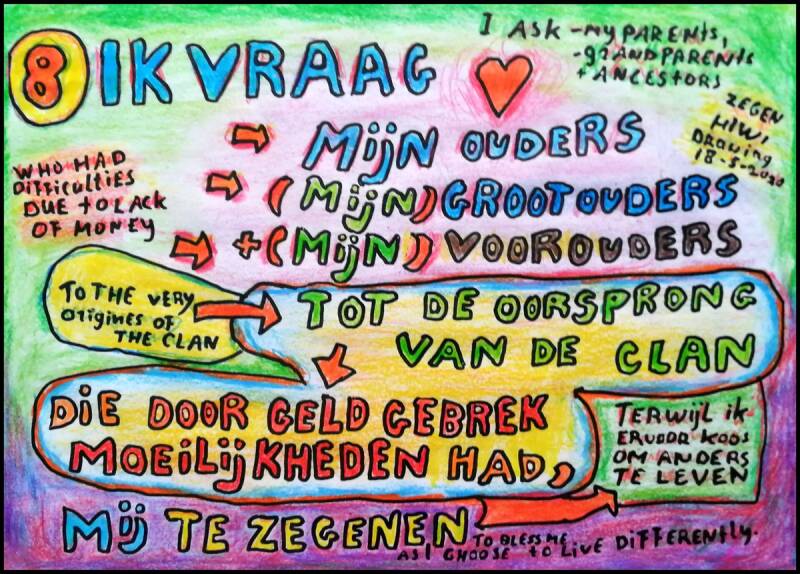 8 IK VRAAG
I ASK - MY PARENTS,
- gRANDPARENTS
+ ANCESTORS
ZEGEN
HIW,
DRAWING
18-5-2020
→ MijN OUDERS
→ (MijN) GROOTOUDERS
→ + (MijN) VOOROUDERS
WHO HAD
DiffiCULTiES
DUE to LACK
OF MONEY
TO THE VERY
ORiGiNES OF
THE CLAN
TOT DE OORSPRONG
VAN DE CLAN
DiE DOOR GELD GEBREK
MOEiLijKHEDEN HAD,
TERWijL ik
ERVOOR KOOS
OM ANDERS
TE LEVEN
Mij TE ZEGENEN
TO BLESS ME
AS I CHOOSE to LiVE DiFFERENTLY.